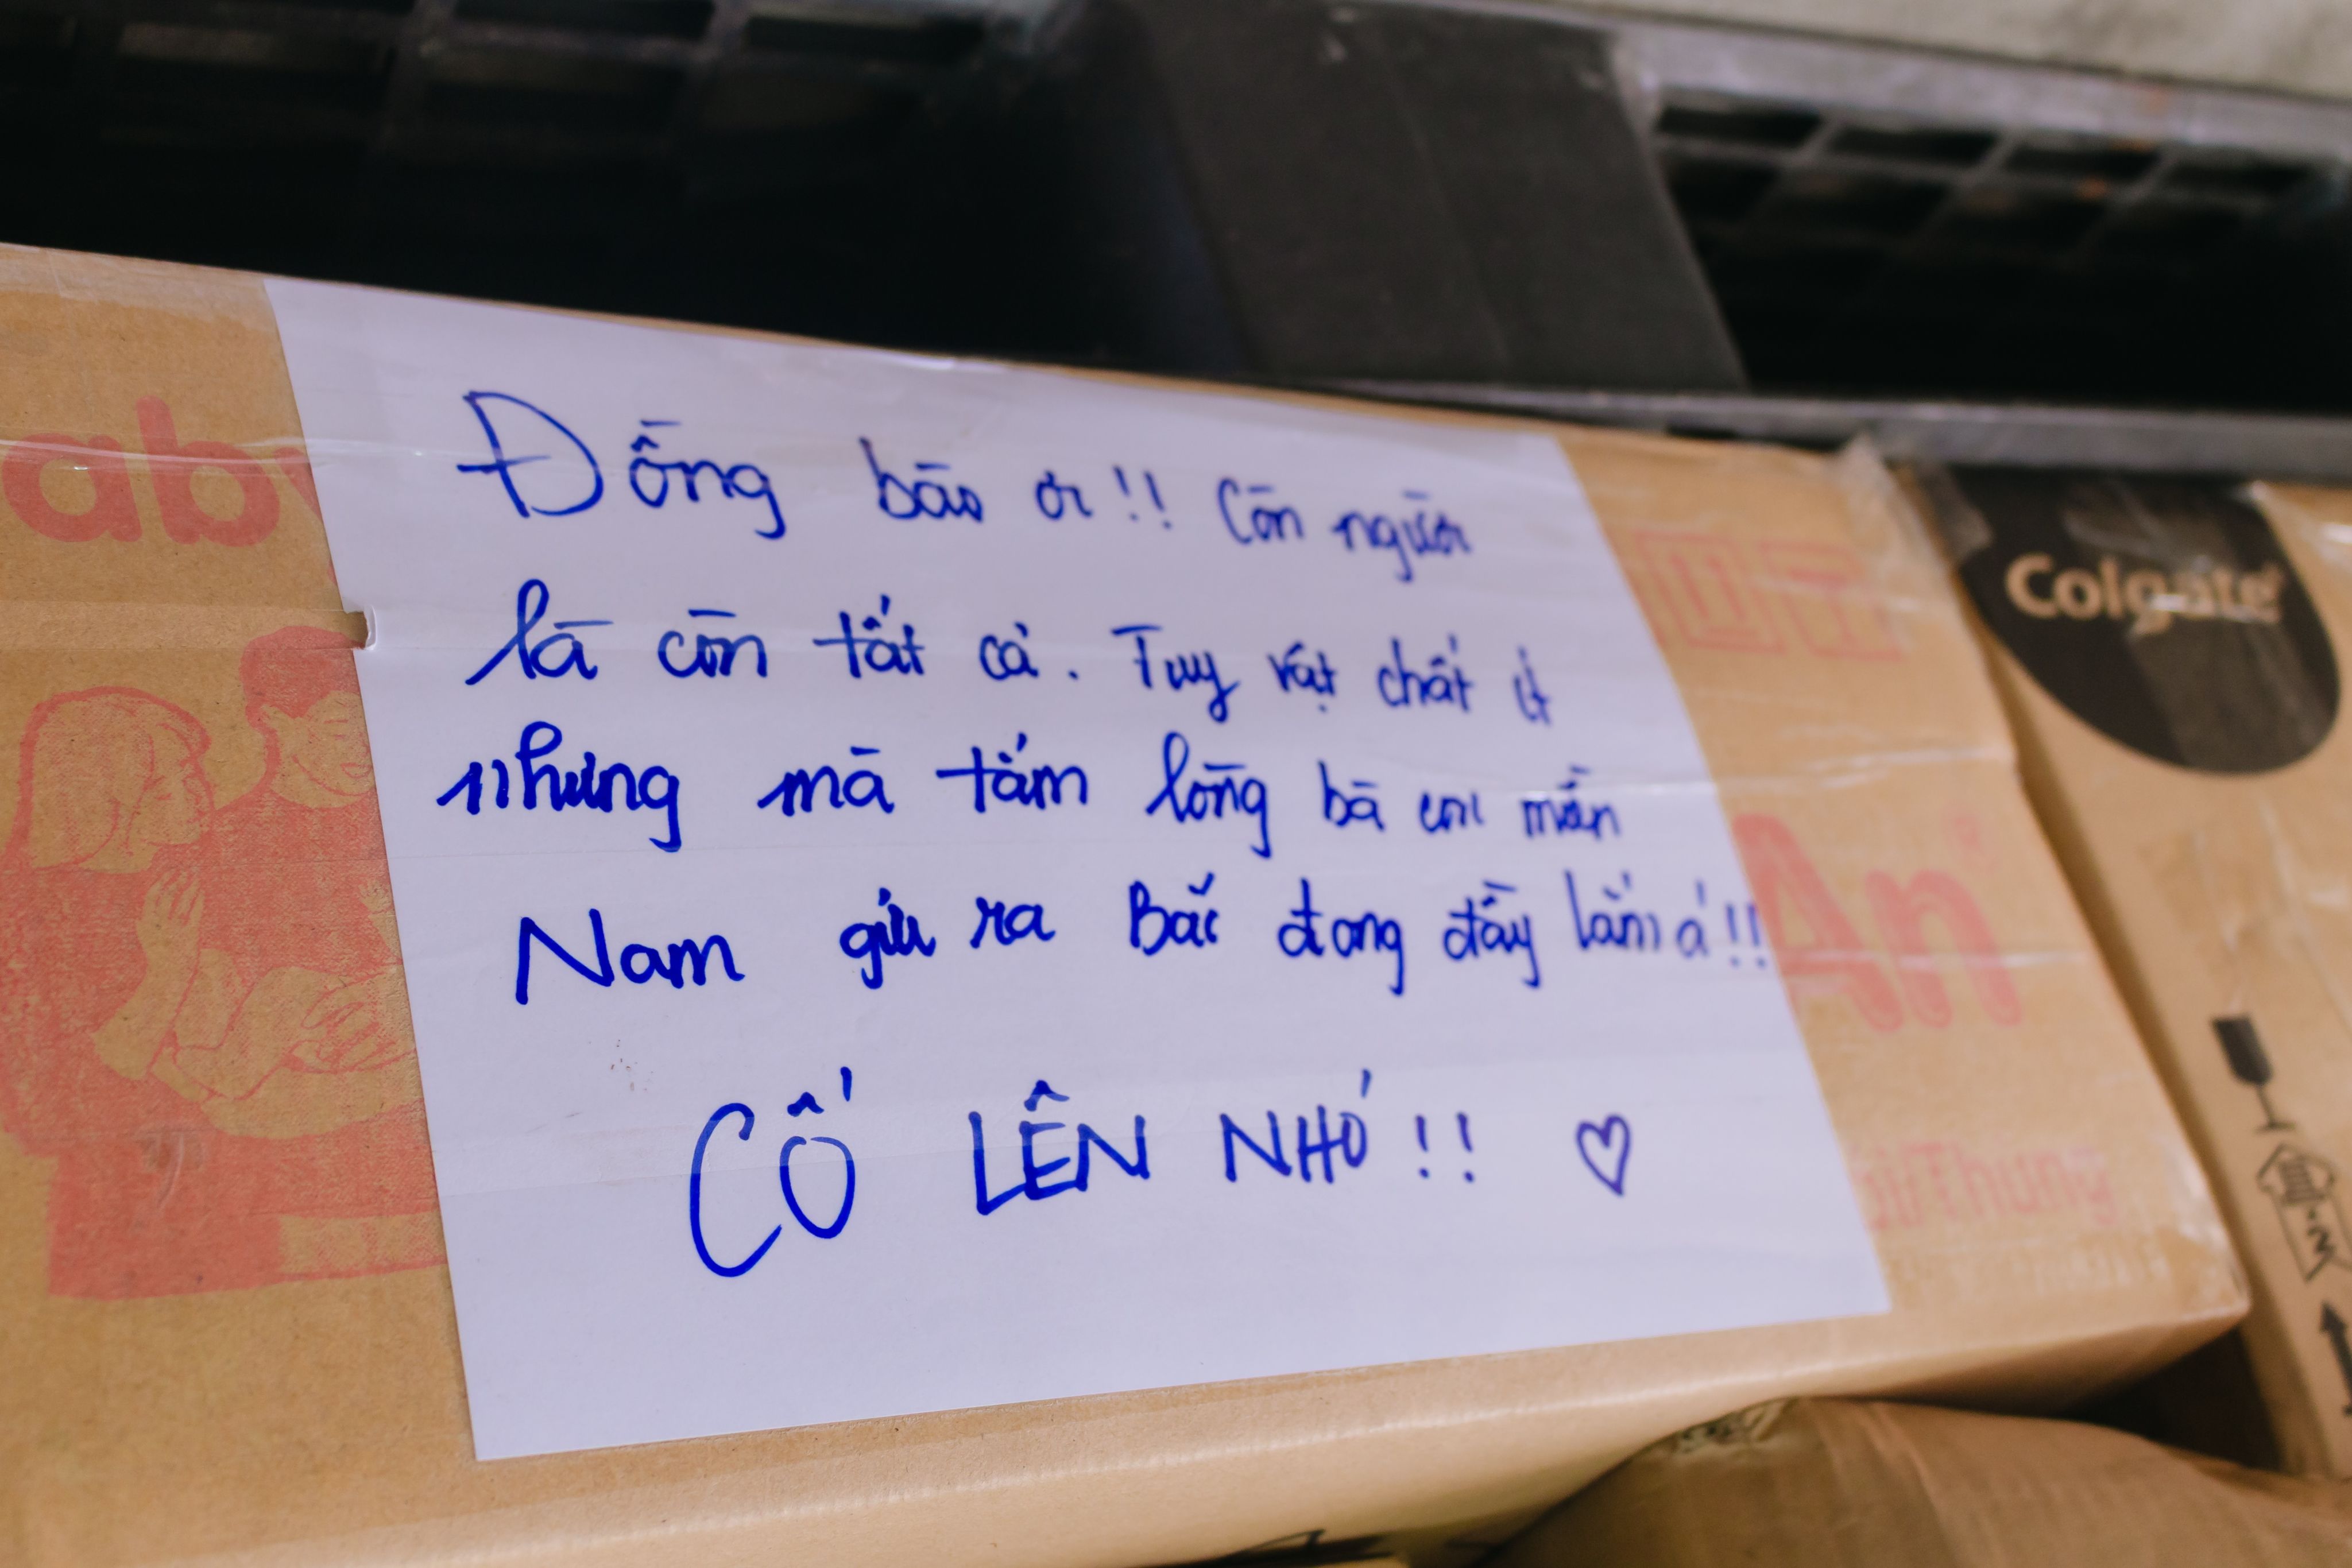 Đồng bào ơi!! Còn người
là còn tất cả. Tuy vật chất ít
nhưng mà tấm lòng bà con miền
Nam gửi ra Bắc đong đầy lắm á!!
CỐ LÊN NHÓ!! ♡
aby
An
Thùng
Colgate